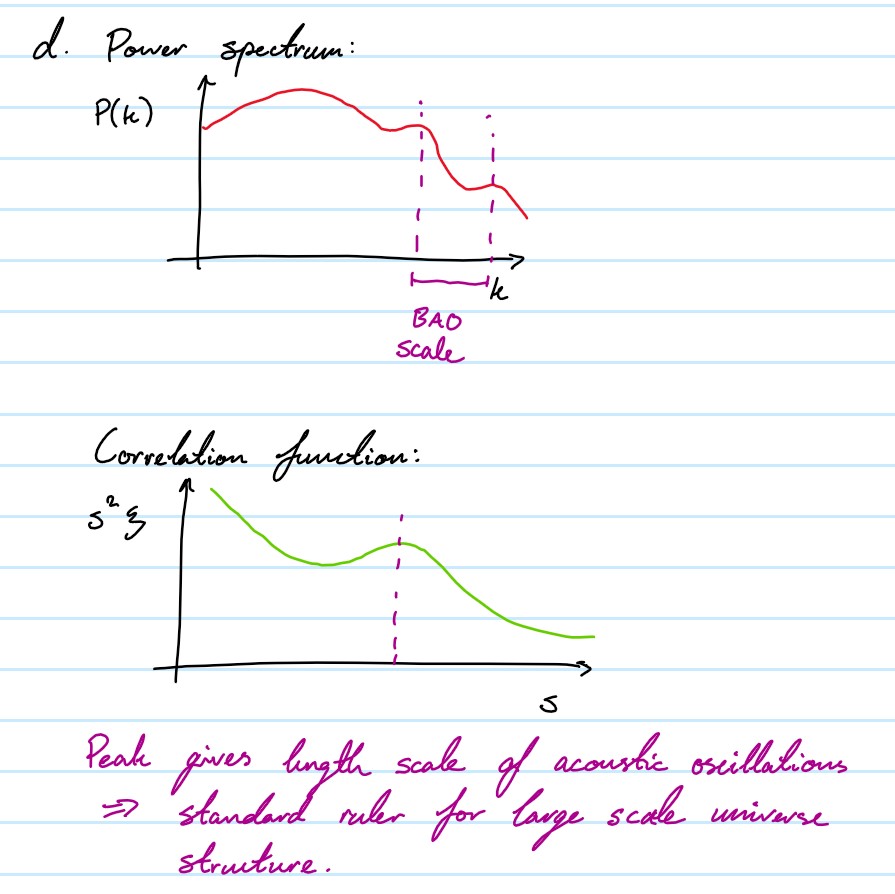 d. Power spectrum:
P(k)
k
BAO
scale
Correlation function:
s²ξ
s
Peak gives length scale of acoustic oscillations
⇒ standard ruler for large scale universe
structure.